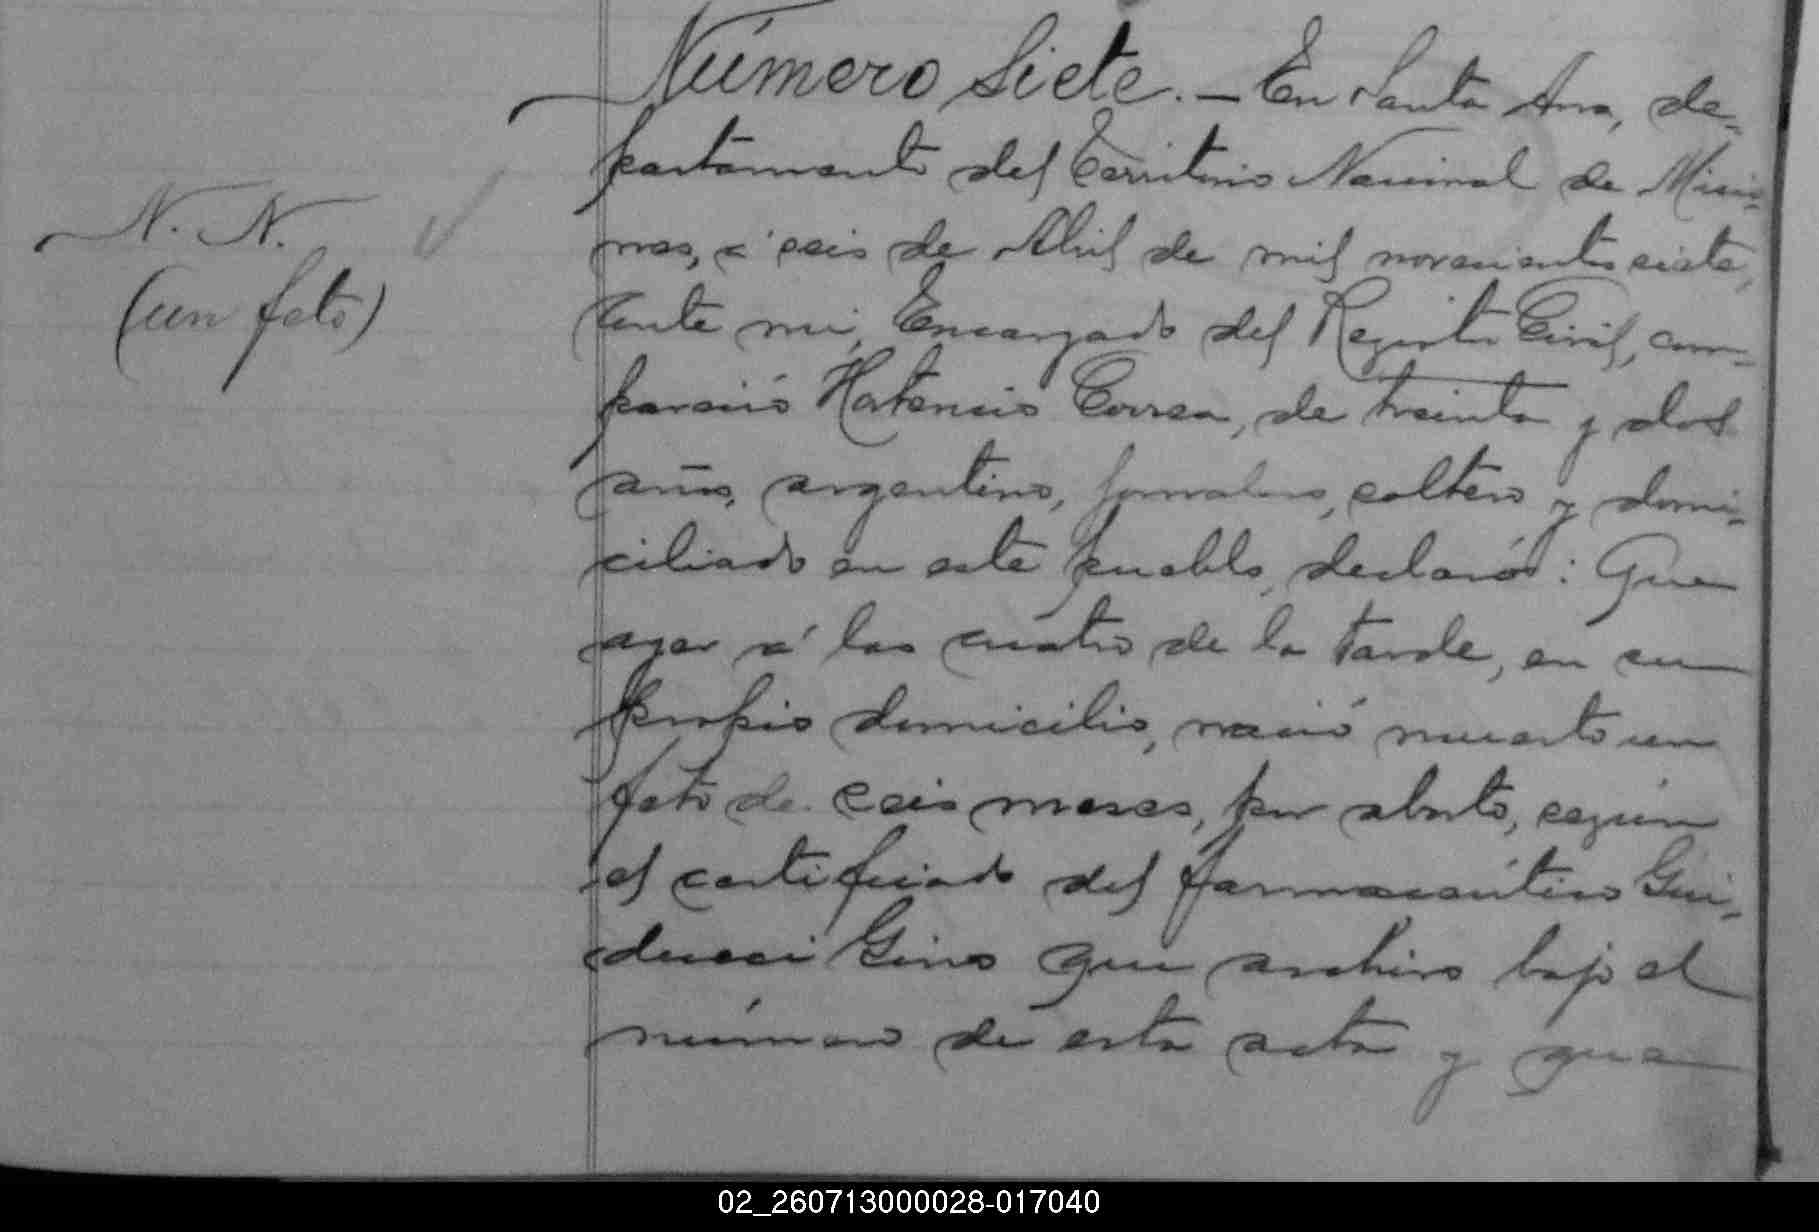 Número Siete. — En Santa Ana, de-
partamento del Territorio Nacional de Misio-
N. N.
nes, á seis de Abril de mil novecientos siete,
(un feto)
ante mi, Encargado del Registro Civil, com-
pareció Hortencio Correa, de treinta y dos
años, argentino, jornalero, soltero y domi-
ciliado en este pueblo, declaró: Que
ayer á las cuatro de la tarde, en su
propio domicilio, nació muerto un
feto de seis meses, por aborto, según
el certificado del farmacéutico Gui-
ducci Gino que archivo bajo el
número de esta acta y que
02_260713000028-017040